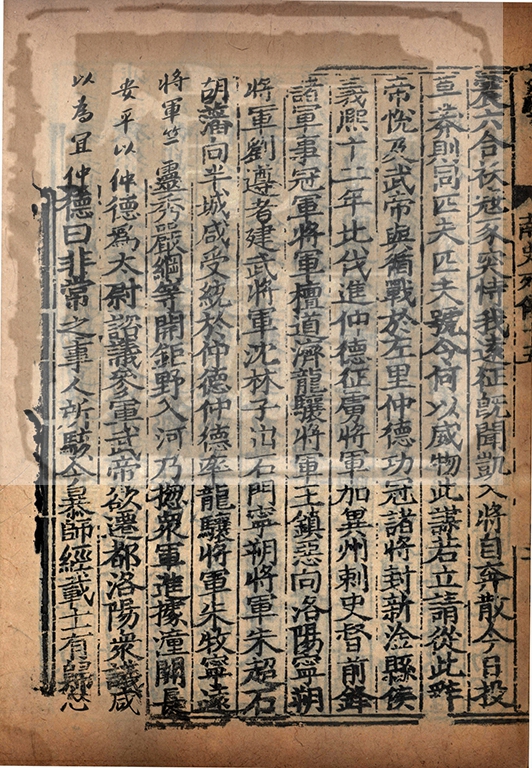 震六合祅冦豕突恃我遠征旣聞凱入將自奔散今日投
草莽則同匹夫匹夫號令何以威物此謀若立請從此辤
帝悅及武帝與循戰於左里仲德功冠諸將封新淦縣侯
義熙十二年北伐進仲德征廣將軍加異州刺史督前鋒
諸軍事冠軍將軍檀道濟龍驤將軍王鎮惡向洛陽寧朔
將軍劉遵者建武將軍沈林子出石門寧朔將軍朱超石
胡藩向半城咸受統於仲德仲德率龍驤將軍朱牧寧遠
將軍竺靈秀嚴綱等開鉅野入河乃揔衆軍進據潼關長
安平以仲德爲太尉諮議參軍武帝欲遷都洛陽衆議咸
以為宜仲德曰非常之事人所駭今暴師經載士有歸